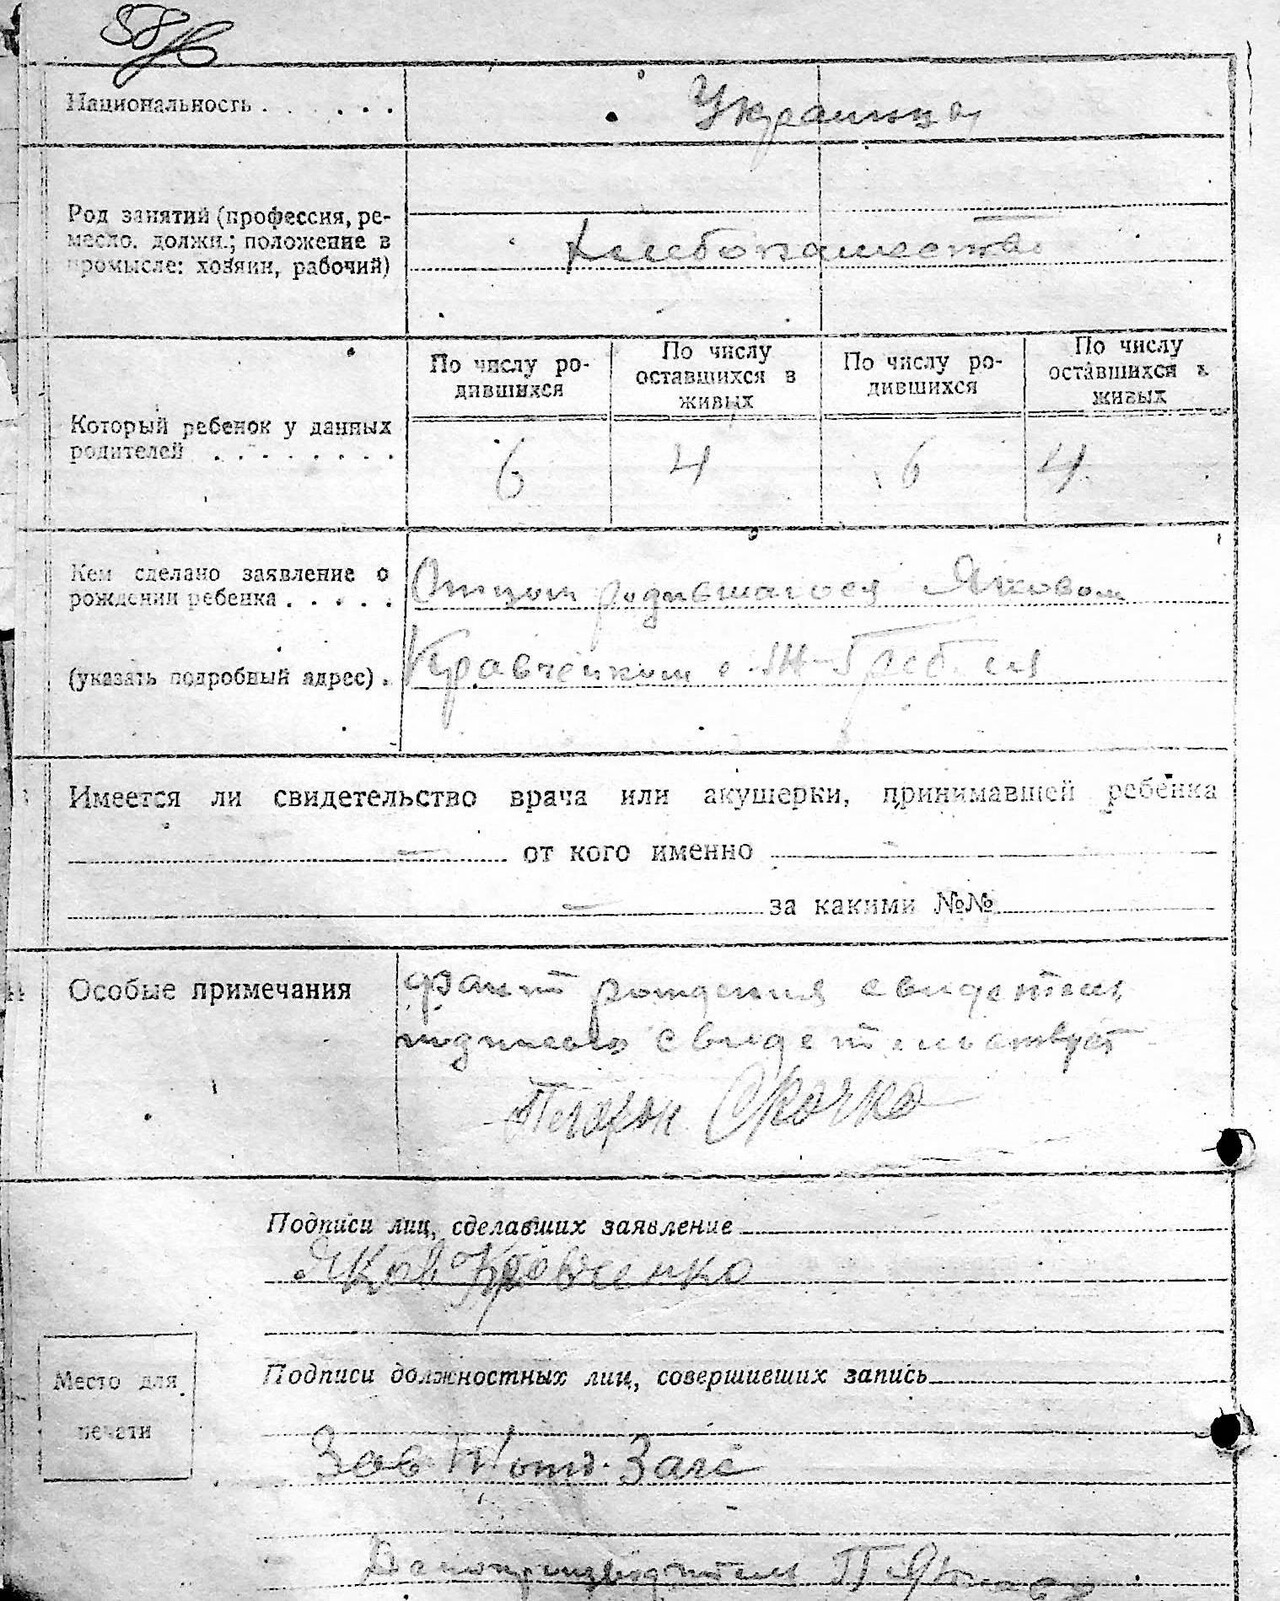 58
Национальность . . . . . Украинцы
Род занятий (профессия, ре-
месло, должн.; положение в
промысле: хозяин, рабочий)
Хлебопашество
Который ребенок у данных
родителей . . . . . . . .
По числу ро-
дившихся
По числу
оставшихся в
живых
По числу ро-
дившихся
По числу
оставшихся в
живых
6 4 6 4
Кем сделано заявление о
рождении ребенка . . . . .
(указать подробный адрес) .
Отцом родившагося Яковом
Кравченком с. Гребля
Имеется ли свидетельство врача или акушерки, принимавшей ребенка
— от кого именно
— за какими №№
Особые примечания
факт рождения свидетель
подписью свидетельствует
Скочко
Подписи лиц, сделавших заявление
Яков Кравченко
Место для
печати
Подписи должностных лиц, совершивших запись
Зав отд. Загс
Делопроизводитель